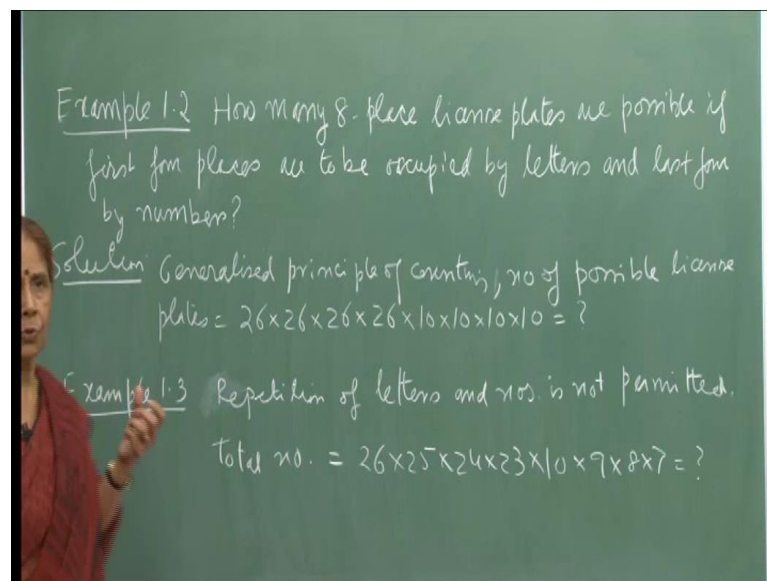 Example 1.2 How many 8-place license plates are possible if
first four places are to be occupied by letters and last four
by numbers?
Solution Generalised principle of counting, no of possible license
plates = 26×26×26×26×10×10×10×10 = ?
Example 1.3 Repetition of letters and nos. is not permitted.
Total no. = 26×25×24×23×10×9×8×7 = ?